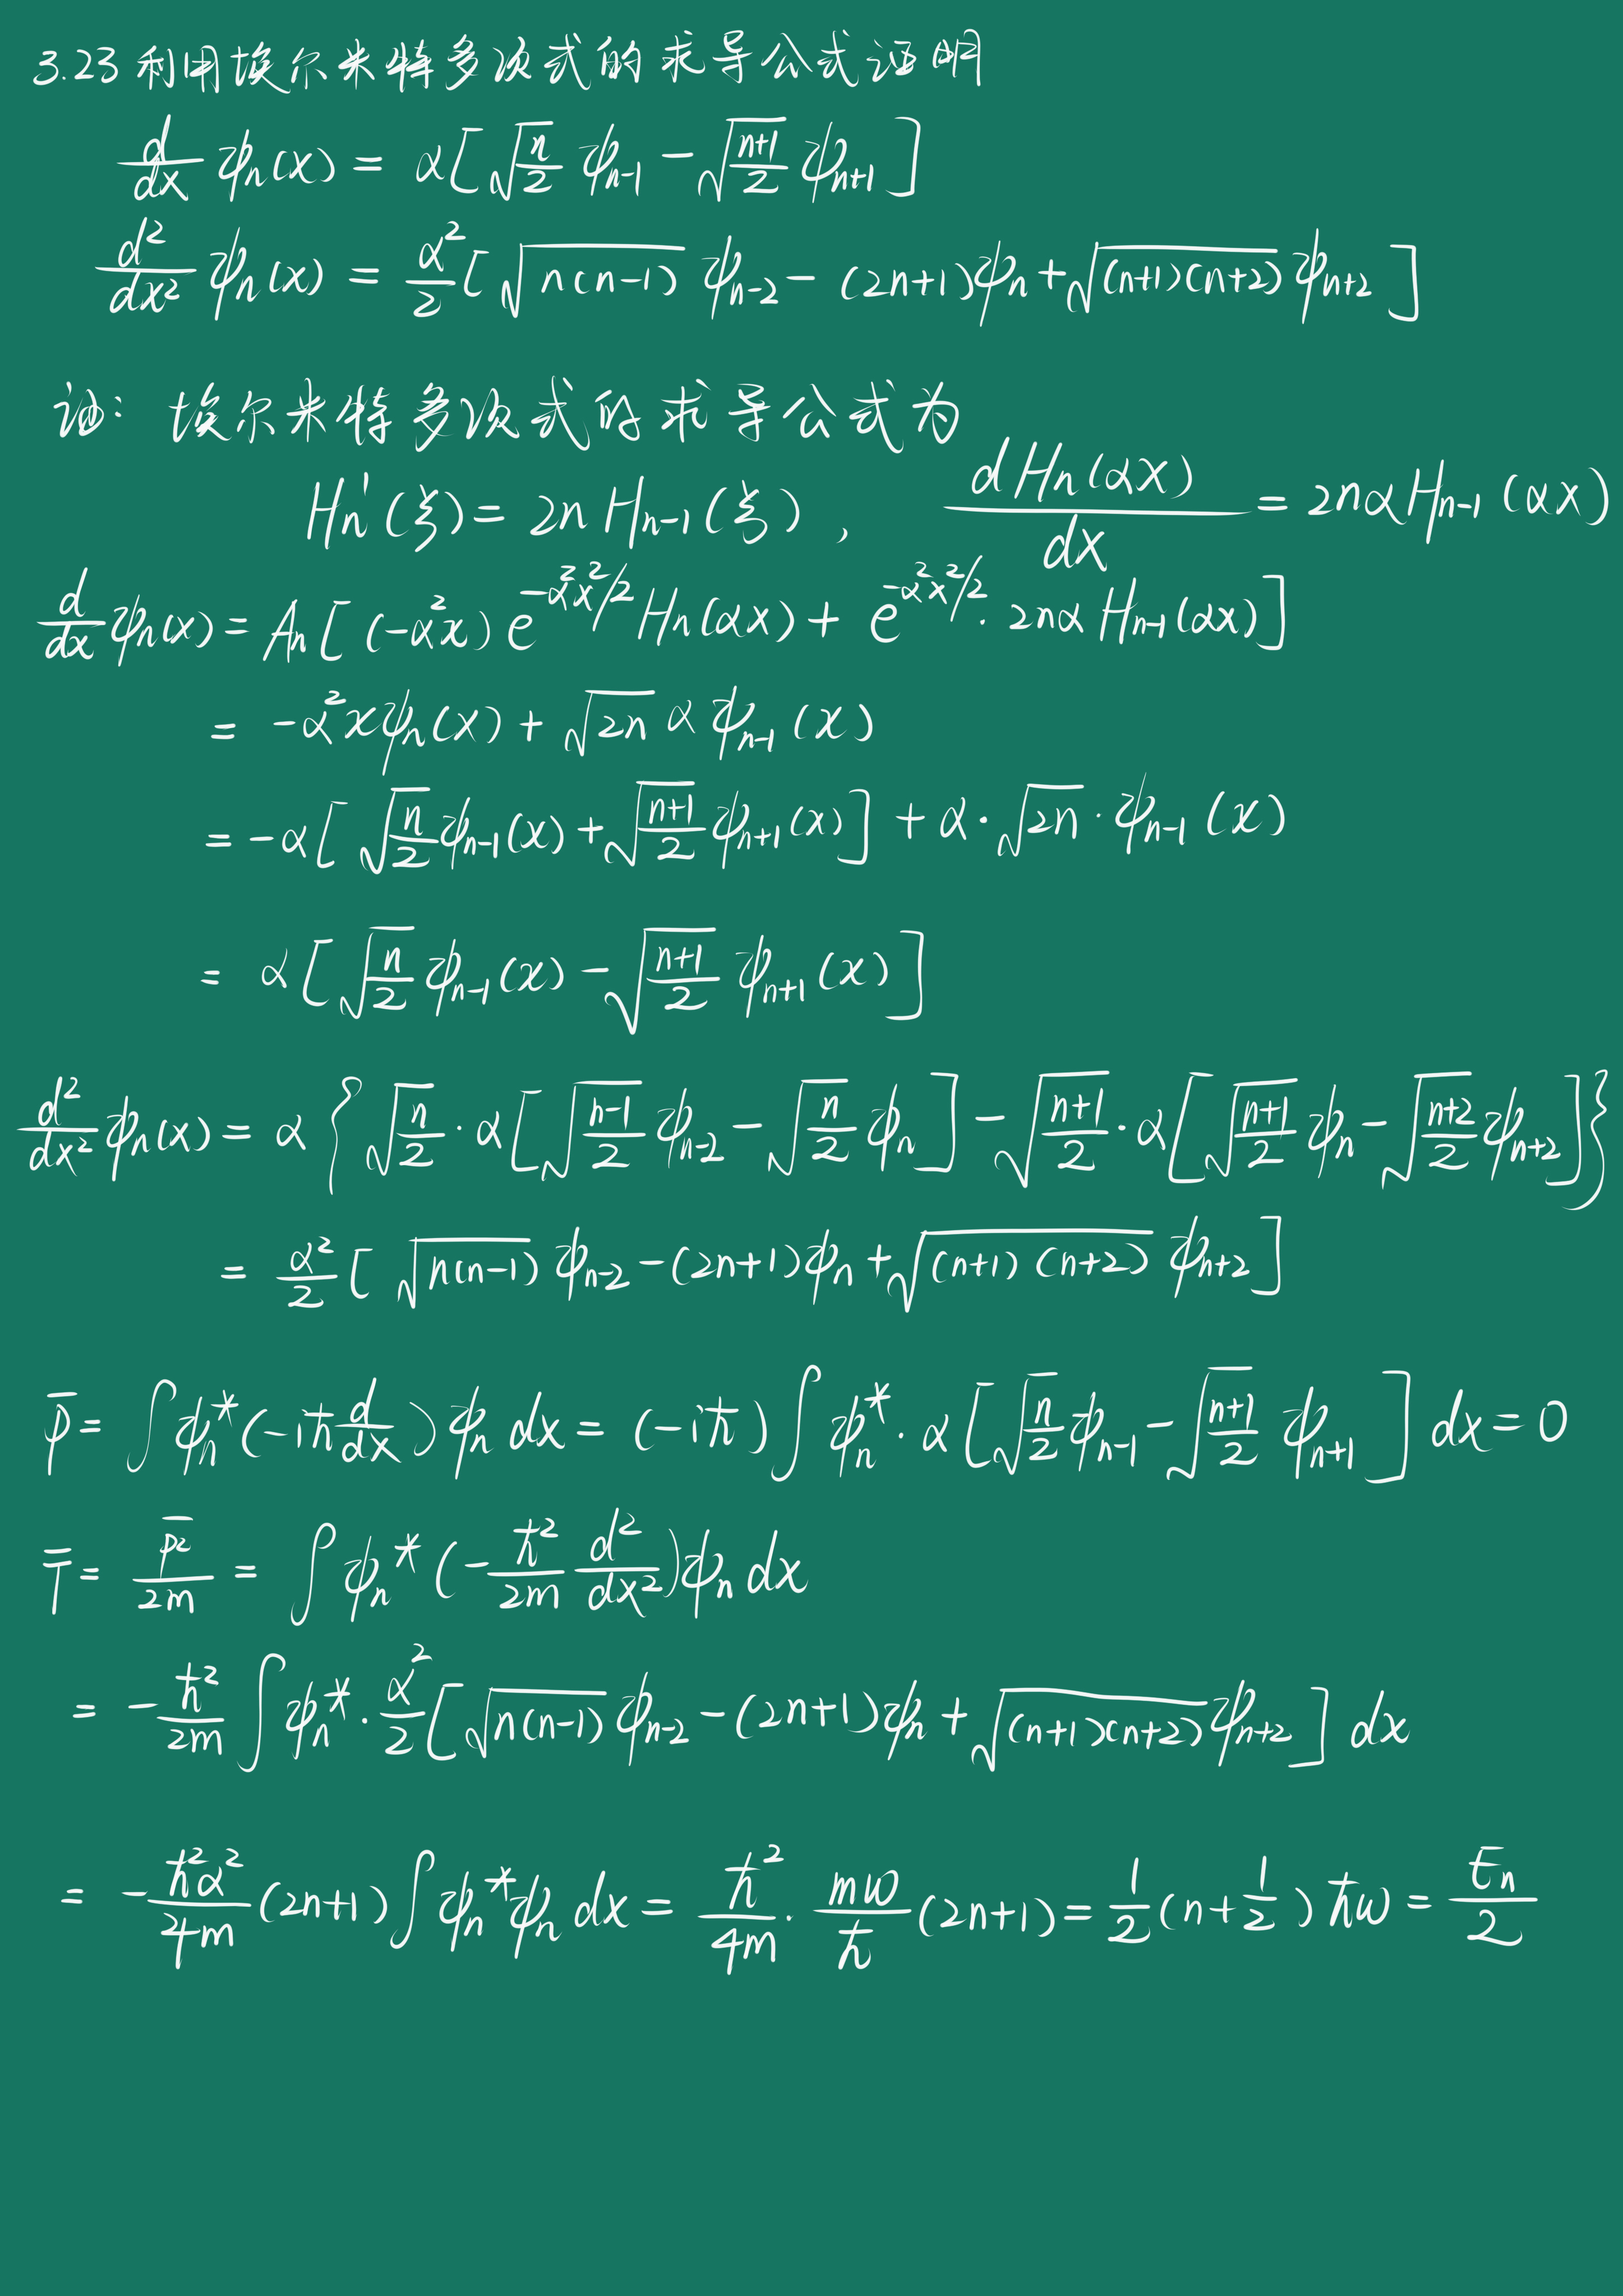 3.23 利用埃尔米特多项式的求导公式证明
d/dx ψn(x) = α[√(n/2) ψn-1 - √((n+1)/2) ψn+1]
d²/dx² ψn(x) = α²/2 [√(n(n-1)) ψn-2 - (2n+1)ψn + √((n+1)(n+2)) ψn+2]
证: 埃尔米特多项式的求导公式为
Hn'(ξ) = 2n Hn-1(ξ), dHn(αx)/dx = 2nαHn-1(αx)
d/dx ψn(x) = An[(-α²x) e^(-α²x²/2) Hn(αx) + e^(-α²x²/2) · 2nα Hn-1(αx)]
= -α²xψn(x) + √(2n) α ψn-1(x)
= -α[√(n/2) ψn-1(x) + √((n+1)/2) ψn+1(x)] + α·√(2n)·ψn-1(x)
= α[√(n/2) ψn-1(x) - √((n+1)/2) ψn+1(x)]
d²/dx² ψn(x) = α{√(n/2)·α[√((n-1)/2) ψn-2 - √(n/2) ψn] - √((n+1)/2)·α[√((n+1)/2) ψn - √((n+2)/2) ψn+2]}
= α²/2 [√(n(n-1)) ψn-2 - (2n+1)ψn + √((n+1)(n+2)) ψn+2]
p̅ = ∫ψn*(-iħ d/dx)ψn dx = (-iħ)∫ψn*·α[√(n/2) ψn-1 - √((n+1)/2) ψn+1] dx = 0
T̅ = p̅²/2m = ∫ψn*(-ħ²/2m d²/dx²)ψn dx
= -ħ²/2m ∫ψn*·α²/2 [√(n(n-1)) ψn-2 - (2n+1)ψn + √((n+1)(n+2)) ψn+2] dx
= -ħ²α²/4m (2n+1)∫ψn*ψn dx = ħ²/4m · mω/ħ (2n+1) = 1/2(n+1/2)ħω = En/2